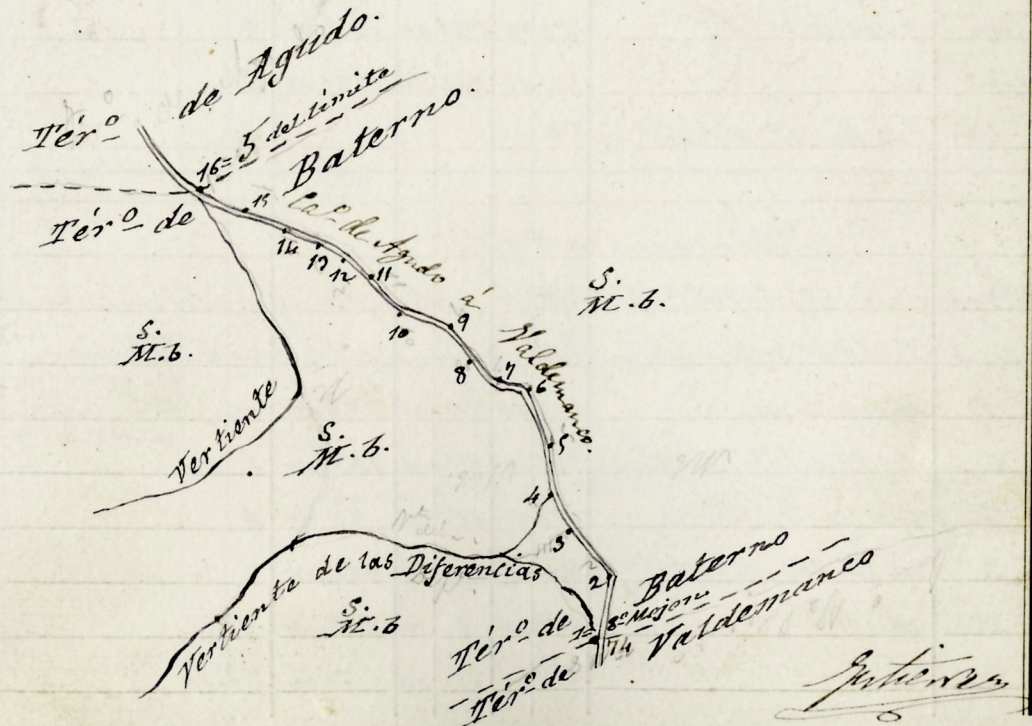 Térº de Agudo.
16=5 del límite
Térº de Baterno.
15
Caº de Agudo á Valdemanco.
14
13
12
11
10
9
8
7
6
5
4
3
2
S.
M.b.
S.
M.b.
S.
M.b.
S.
M.b
Vertiente
Vertiente de las Diferencias
Térº de Baterno
1=8º Mojon
74
Térº de Valdemanco
Gutierrez